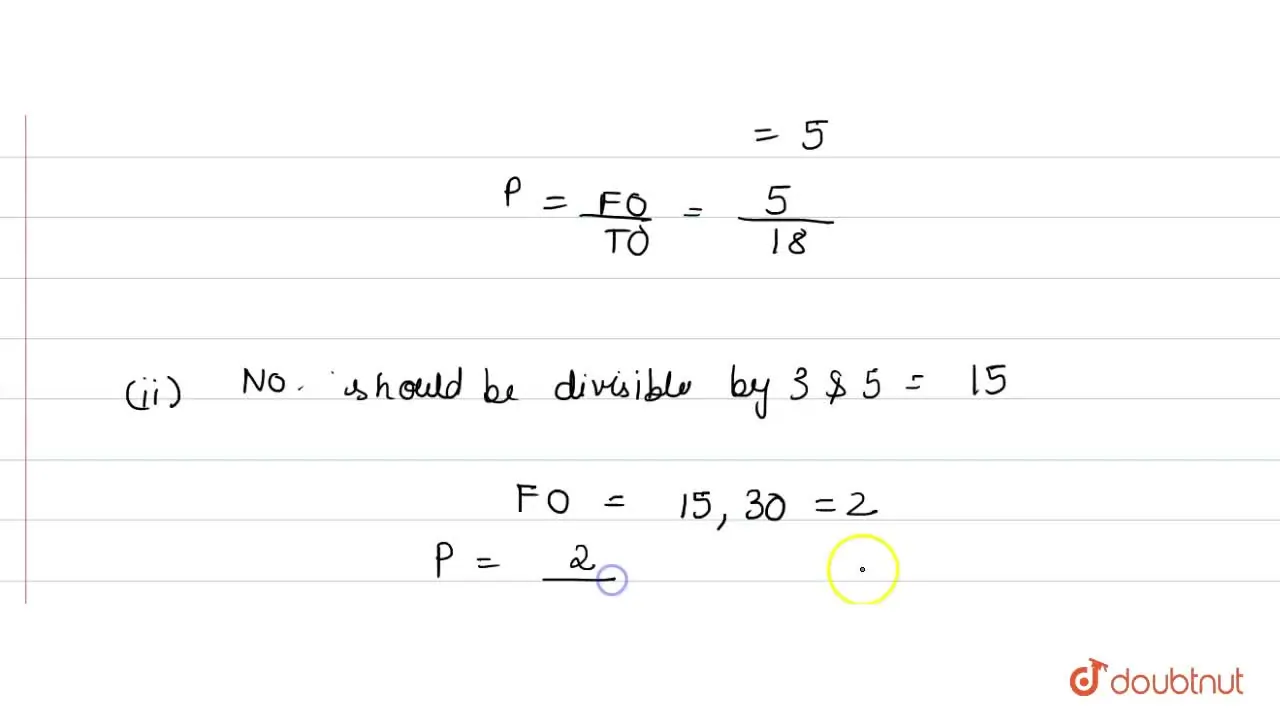 = 5
P = FO/TO = 5/18
(ii) No. should be divisible by 3 & 5 = 15
FO = 15, 30 = 2
P = 2
doubtnut